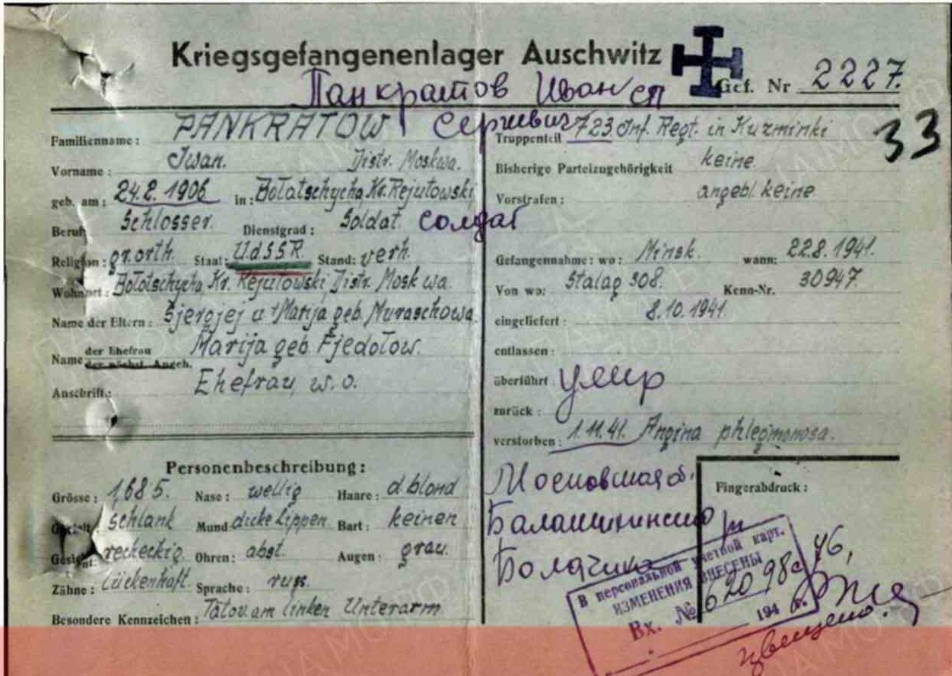 Kriegsgefangenenlager Auschwitz
Gef. Nr 2227.
Панкратов Иван
Сергиевич
33
Familienname: PANKRATOW
Vorname: Iwan. Distr. Moskwa.
geb. am: 24.2.1906 in: Bolatschycha, Kr. Rejutowski
Beruf: Schlosser. Dienstgrad: Soldat. солдат
Religion: gr. orth. Staat: UdSSR Stand: verh.
Wohnort: Bolotschycha, Kr. Rejutowski, Distr. Moskwa.
Name der Eltern: Sjergjej u. Marija geb. Muraschowa
Name der Ehefrau der nächst. Angeh. Marija geb. Fjedotow.
Anschrift: Ehefrau, w. o.
Truppenteil 723. Inf. Regt. in Kuzminki
Bisherige Parteizugehörigkeit keine
Vorstrafen: angebl. keine
Gefangennahme: wo: Minsk. wann: 22.8.1941.
Von wo: Stalag 308. Kenn-Nr. 30947
eingeliefert: 8.10.1941.
entlassen:
überführt: умир
zurück:
verstorben: 1.11.41. Angina phlegmonosa.
Personenbeschreibung:
Grösse: 1,685. Nase: wellig Haare: d. blond
Gestalt: schlank Mund dicke Lippen Bart: keinen
Gesicht: recheckig. Ohren: abst. Augen: grau.
Zähne: Lückenhaft. Sprache: russ.
Besondere Kennzeichen: Tätov. am linken Unterarm
Московская о.
Балашихинский р
Болачиха
Fingerabdruck:
В персональной учетной карт.
ИЗМЕНЕНИЯ ВНЕСЕНЫ
Вх. № 62098с 46,
194 г.